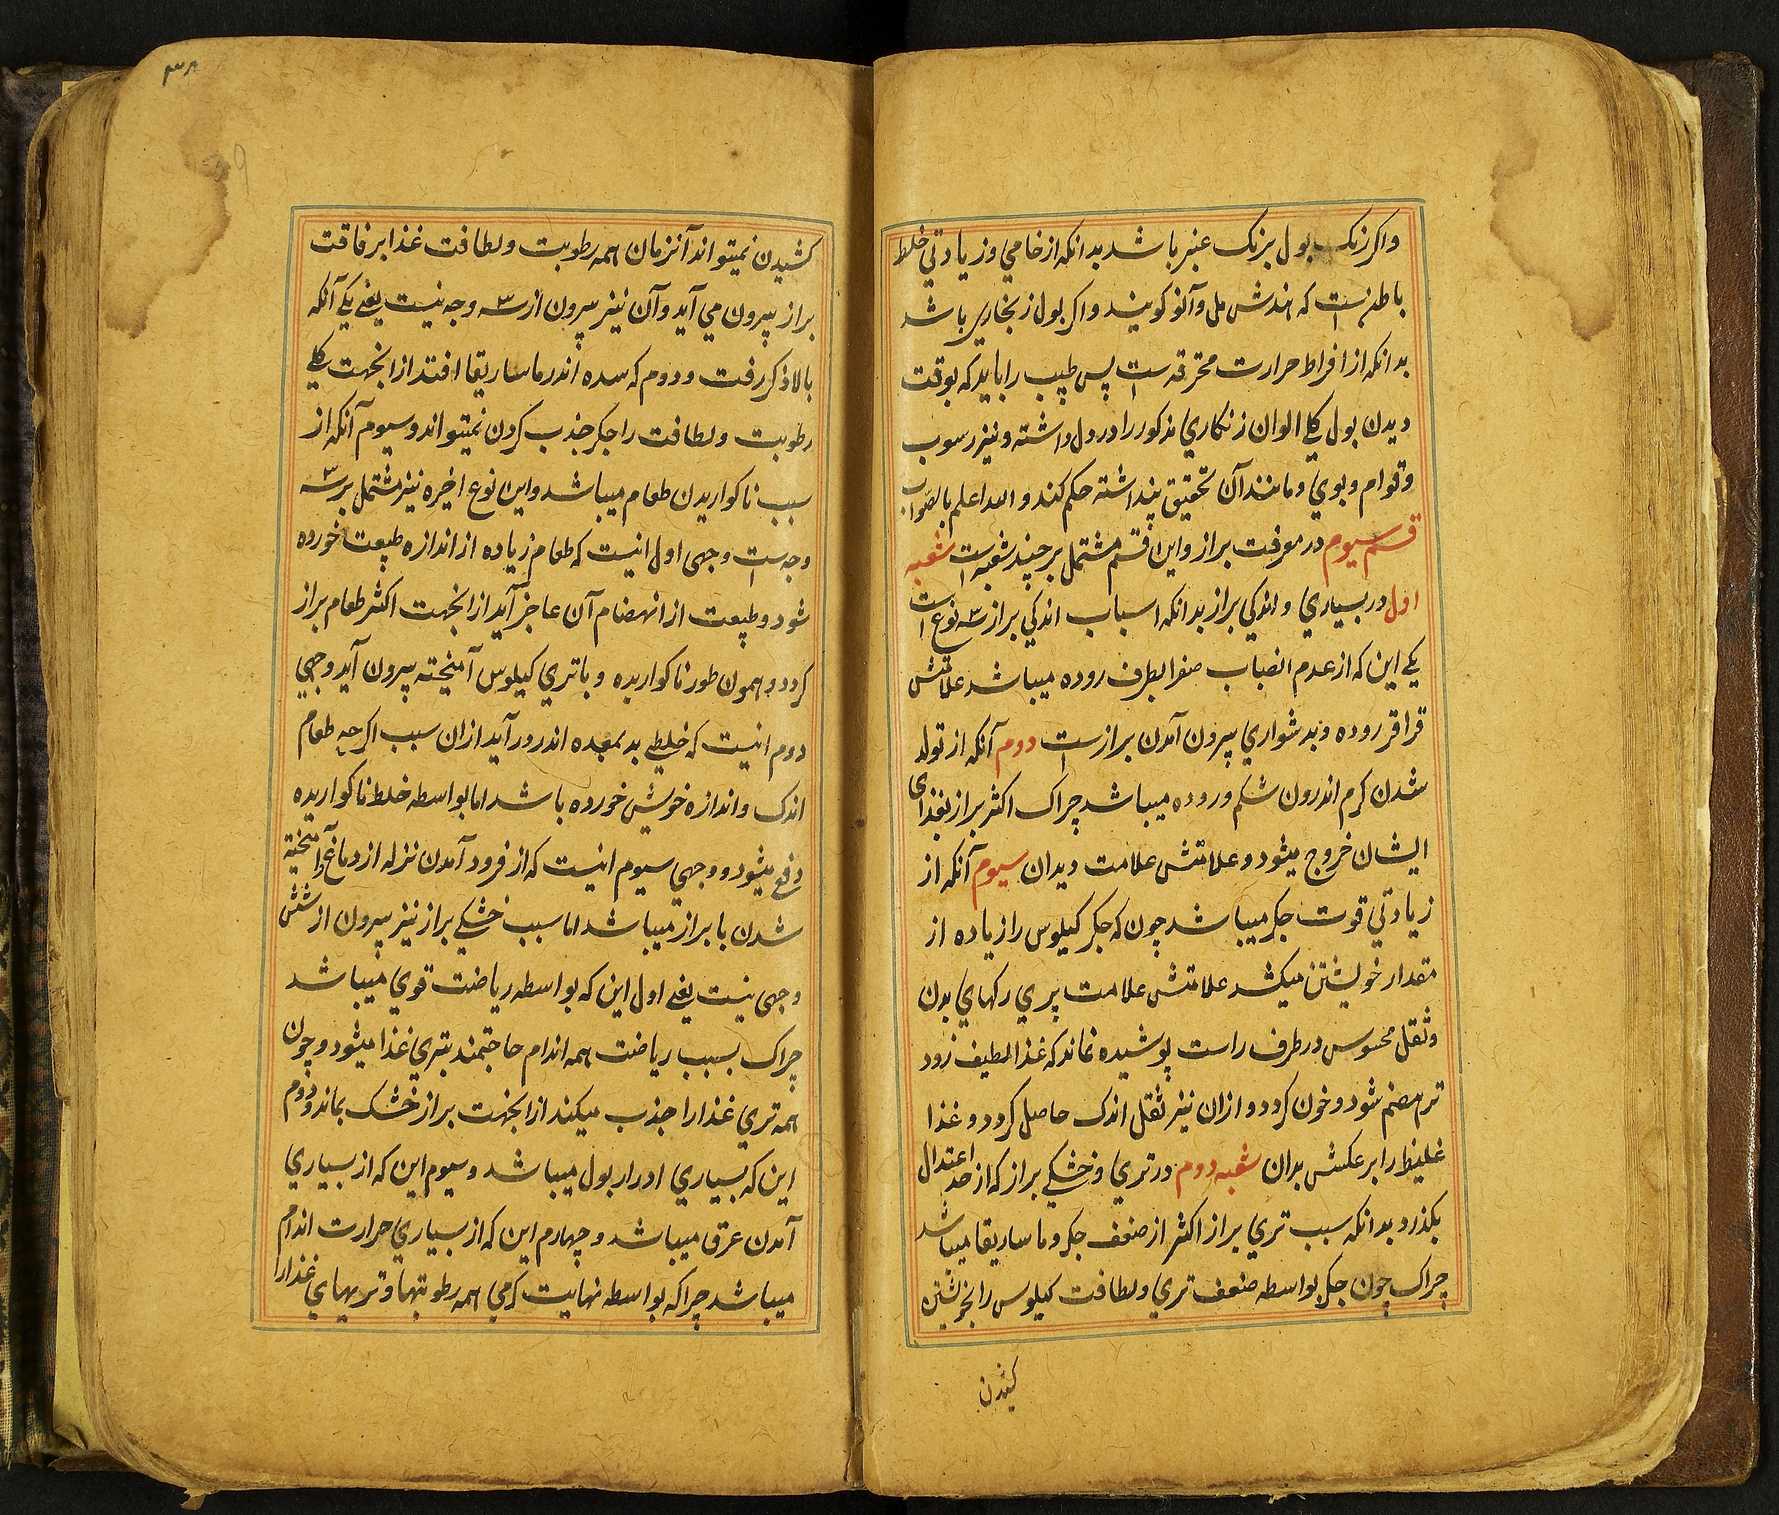 واكر رنك بول برنك عنبر باشد بدانكه از خامي و زيادتي خلط
باطن است كه هندش مل و آنو كويند و اكر بول زنجاري باشد
بدانكه از افراط حرارت محترقه است پس طبيب را بايد كه بوقت
ديدن بول كلي الوان زنكاري مذكور را در دل داشته و نيز رسوب
و قوام و بوي و مانند آن تحقيق پنداشته حكم كند و الله اعلم بالصواب
قسم سيوم در معرفت براز و اين قسم مشتمل بر چند شعبه است شعبه
اول در بسياري و اندكي براز بدانكه اسباب اندكي براز سه نوع است
يكي اين كه از عدم انصباب صفرا بطرف روده ميباشد علامتش
قراقر روده و بدشواري بيرون آمدن براز است دوم آنكه از تولد
شدن كرم اندرون شكم و روده ميباشد چراك اكثر براز بغذاى
ايشان خروج ميشود و علامتش علامت ديدان سيوم آنكه از
زيادتي قوت جكر ميباشد چون كه جكر كيلوس را زياده از
مقدار خويشتن ميكشد علامتش علامت پري ركهاي بدن
و ثقل محسوس در طرف راست پوشيده نماند كه غذا لطيف زود
تر هضم شود و خون كردد و ازان نيز ثقل اندك حاصل كردد و غذا
غليظ را برعكس بدان شعبه دوم در تري و خشكي براز كه از حد اعتدال
بكذرد بدانكه سبب تري براز اكثر از ضعف جكر و ماساريقا ميباشد
چراك چون جكر بواسطه ضعف تري و لطافت كيلوس را بخويشتن
كشيدن
٣٨
كشيدن نميتواند آنزمان همه رطوبت و لطافت غذا برفاقت
براز بيرون مي آيد و آن نيز بيرون از سه وجه نيست يعني يكي آنكه
بالا ذكر رفت و دوم كه سده اندر ماساريقا افتد ازانجهت كلي
رطوبت و لطافت را جكر جذب كردن نميتواند و سيوم آنكه از
سبب ناكواريدن طعام ميباشد و اين نوع اخيره نيز مشتمل بر سه
وجه است وجهى اول انيست كه طعام زياده از اندازه طبيعت خورده
شود و طبيعت از انهضام آن عاجز آيد ازانجهت اكثر طعام براز
كردد و همون طور ناكواريده و باتري كيلوس آميخته بيرون آيد وجهي
دوم انيست كه خلطي بد بمعده اندر ور آيد ازان سبب اكرچه طعام
اندك و اندازه خويش خورده باشد اما بواسطه خلط ناكواريده
دفع ميشود و وجهي سيوم انيست كه از فرود آمدن نزله از دماغ و آميخته
شدن با براز ميباشد اما سبب خشكي براز نيز بيرون از شش
وجهى نيست يعني اول اين كه بواسطه رياضت قوي ميباشد
چراك بسبب رياضت همه اندام حاجتمند بتري غذا ميشود و چون
همه تري غذا را جذب ميكند ازانجهت براز خشك بماند و دوم
اين كه بسياري ادرار بول ميباشد و سيوم اين كه از بسياري
آمدن عرق ميباشد و چهارم اين كه از بسياري حرارت اندام
ميباشد چراكه بواسطه نهايت كرمي همه رطوبتها و تريهاي غذا را